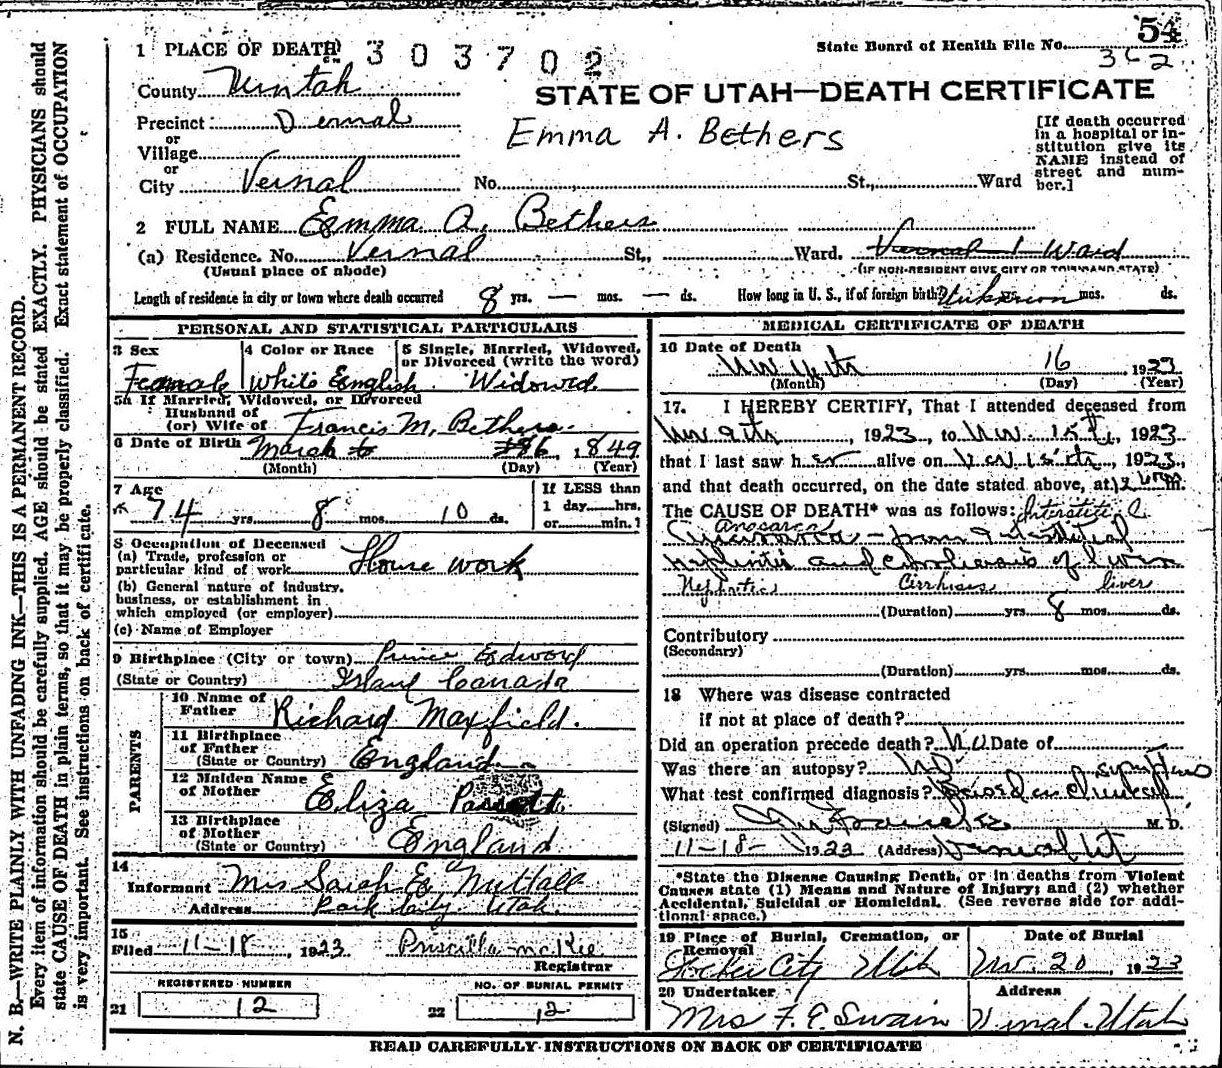 54
1 PLACE OF DEATH 303702 State Board of Health File No. 362
County Uintah
STATE OF UTAH—DEATH CERTIFICATE
Precinct Vernal
Emma A. Bethers
[If death occurred in a hospital or institution give its NAME instead of street and number.]
or
Village
or
City Vernal No. St., Ward
2 FULL NAME Emma A. Bethers
(a) Residence. No. Vernal St., Ward. Vernal 1 Ward
(Usual place of abode) (IF NON-RESIDENT GIVE CITY OR TOWN AND STATE)
Length of residence in city or town where death occurred 8 yrs. — mos. — ds. How long in U. S., if of foreign birth? Unknown mos. ds.
PERSONAL AND STATISTICAL PARTICULARS
3 Sex 4 Color or Race 5 Single, Married, Widowed, or Divorced (write the word)
Female White English Widowed
5a If Married, Widowed, or Divorced
Husband of
(or) Wife of Francis M. Bethers
6 Date of Birth March 6, 1849
(Month) (Day) (Year)
7 Age If LESS than
74 yrs. 8 mos. 10 ds. 1 day hrs. or min.?
8 Occupation of Deceased
(a) Trade, profession or particular kind of work House work
(b) General nature of industry, business, or establishment in which employed (or employer)
(c) Name of Employer
9 Birthplace (City or town) Prince Edward
(State or Country) Island Canada
PARENTS
10 Name of Father Richard Maxfield.
11 Birthplace of Father (State or Country) England
12 Maiden Name of Mother Eliza
13 Birthplace of Mother (State or Country) England
14
Informant Mrs Sarah E. Nuttall
Address Park City Utah.
15
Filed 11-18, 1923 Priscilla McKee
Registrar
REGISTERED NUMBER NO. OF BURIAL PERMIT
21 12 22 12
MEDICAL CERTIFICATE OF DEATH
16 Date of Death
16 1923
(Month) (Day) (Year)
17. I HEREBY CERTIFY, That I attended deceased from
1923, to Nov. 15th, 1923
that I last saw her alive on Nov 15th, 1923,
and that death occurred, on the date stated above, at m.
The CAUSE OF DEATH* was as follows: Interstitial
anasarca
from Interstitial
Nephritis and Cirrhosis of liver
Nephritis Cirrhosis liver
(Duration) yrs. 8 mos. ds.
Contributory
(Secondary)
(Duration) yrs. mos. ds.
18 Where was disease contracted
if not at place of death?
Did an operation precede death? No Date of
Was there an autopsy? No
symptoms
What test confirmed diagnosis? Based on clinical
(Signed) M. D.
11-18- 1923 (Address) Vernal Ut
*State the Disease Causing Death, or in deaths from Violent
Causes state (1) Means and Nature of Injury; and (2) whether
Accidental, Suicidal or Homicidal. (See reverse side for addi-
tional space.)
19 Place of Burial, Cremation, or Removal Date of Burial
City Utah Nov. 20, 1923
20 Undertaker Address
Mrs F. E. Swain Vernal. Utah
READ CAREFULLY INSTRUCTIONS ON BACK OF CERTIFICATE
N. B.—WRITE PLAINLY WITH UNFADING INK—THIS IS A PERMANENT RECORD.
Every item of information should be carefully supplied. AGE should be stated EXACTLY. PHYSICIANS should
state CAUSE OF DEATH in plain terms, so that it may be properly classified. Exact statement of OCCUPATION
is very important. See instructions on back of certificate.